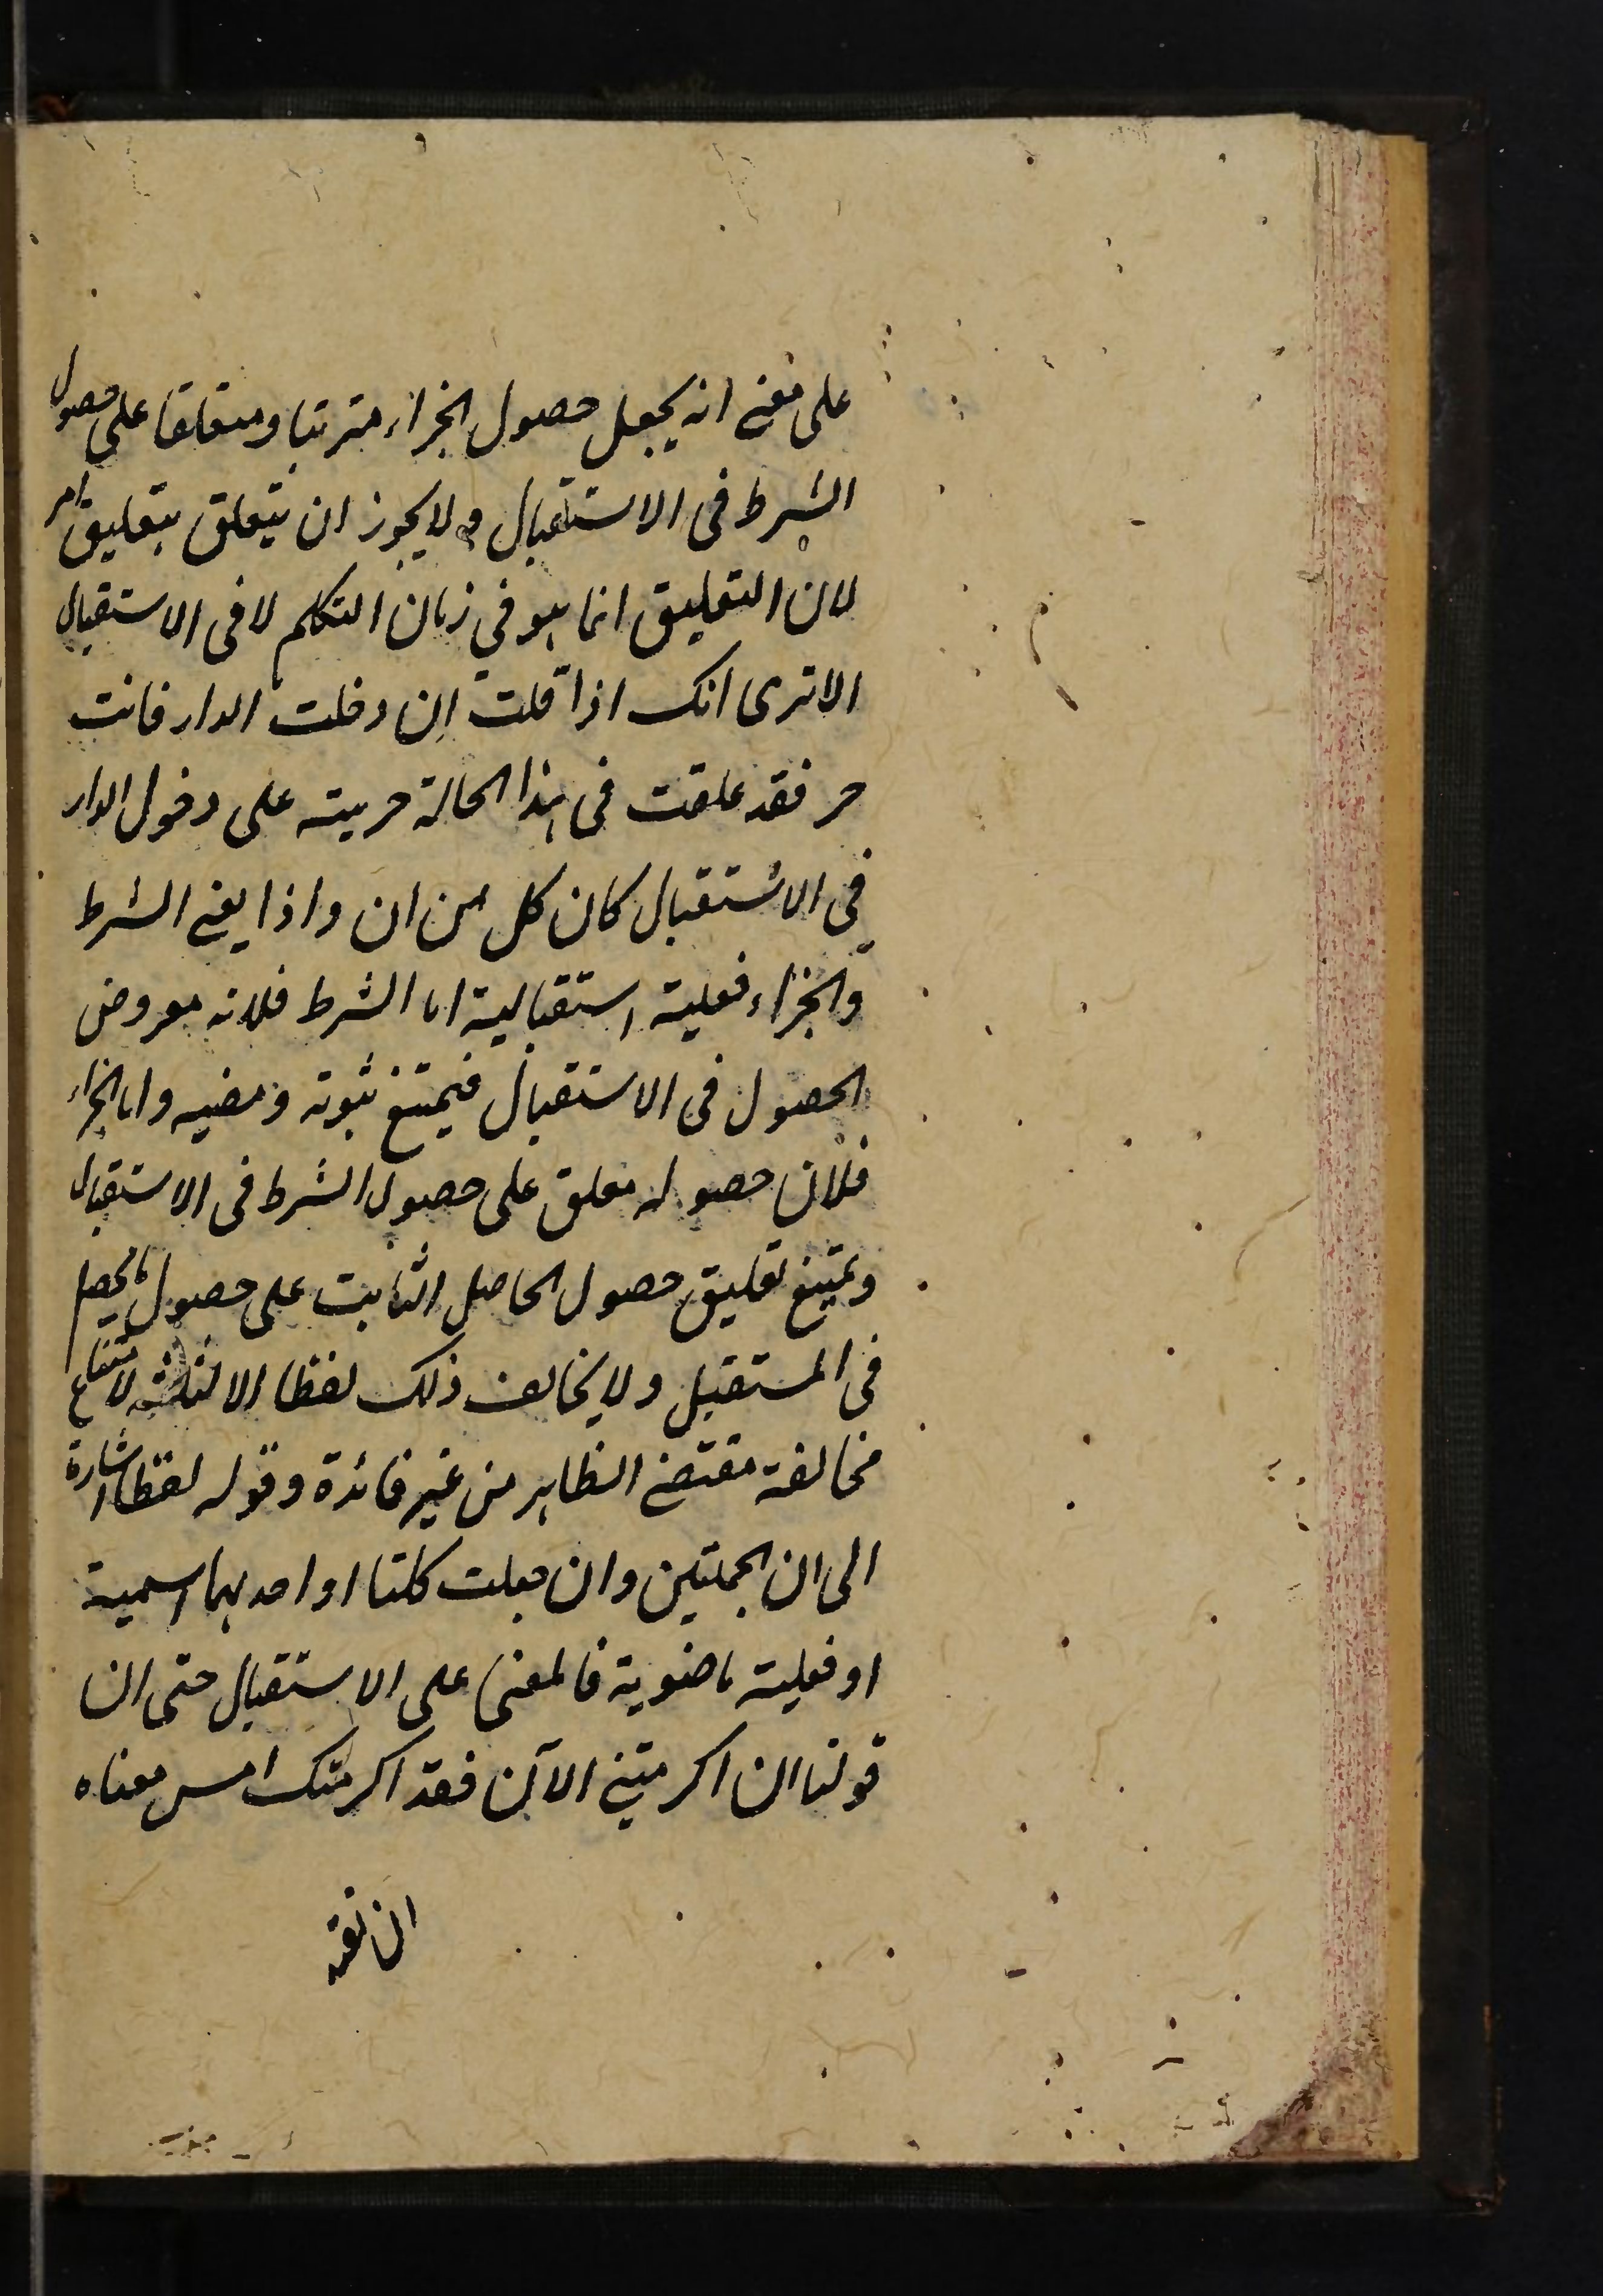 على معنى انه يجعل حصول الجزاء مترتبا ومتعلقا على حصول
الشرط فى الاستقبال ولا يجوز ان يتعلق بتعليق امر
لان التعليق انما هو في زمان التكلم لا فى الاستقبال
الا ترى انك اذا قلت ان دخلت الدار فانت
حر فقد علقت فى هذا الحالة حريته على دخول الدار
في الاستقبال كان كل من ان واذا يعنى الشرط
والجزاء فعلية استقبالية اما الشرط فلانه مفروض
الحصول فى الاستقبال فيمتنع ثبوته ومضيه واما الجزاء
فلان حصوله معلق على حصول الشرط فى الاستقبال
ويمتنع تعليق حصول الحاصل الثابت على حصول ما يحصل
فى المستقبل ولا يخالف ذلك لفظا الا لنكتة لامتناع
مخالفة مقتضى الظاهر من غير فائدة وقوله لفظا اشارة
الى ان الجملتين وان جعلت كلتا او احديهما اسمية
او فعلية ماضوية فالمعنى على الاستقبال حتى ان
قولنا ان اكرمتنى الآن فقد اكرمتك امس معناه
ان تعتد